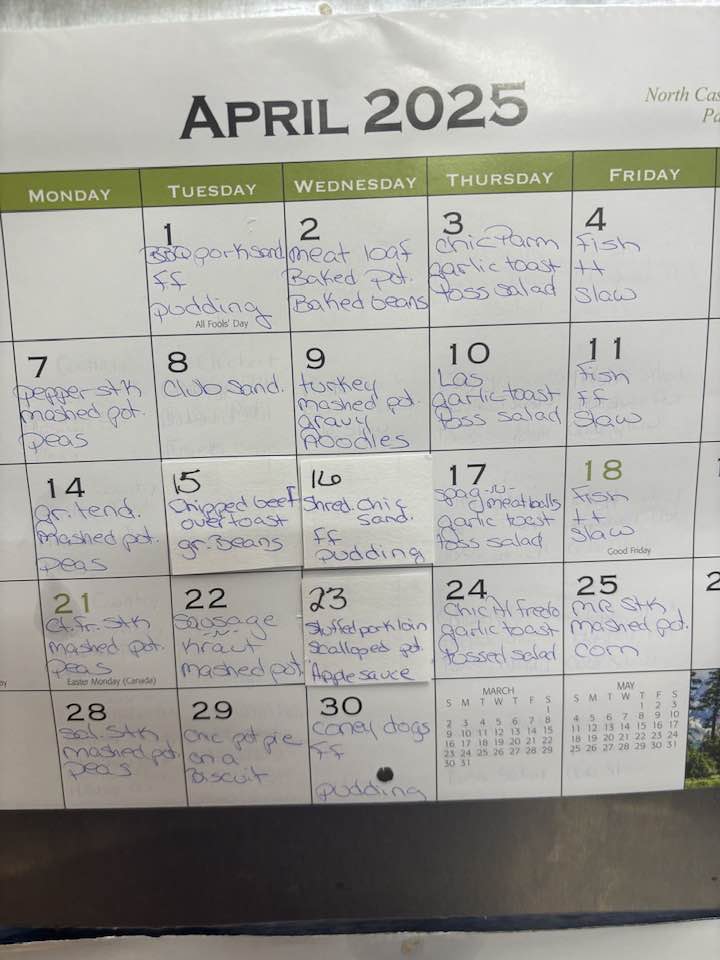 APRIL 2025
North Cas
Pa
MONDAY TUESDAY WEDNESDAY THURSDAY FRIDAY
1
BBQ pork sand
ff
pudding
All Fools' Day
2
meat loaf
Baked pot.
Baked beans
3
Chic Parm
garlic toast
toss salad
4
Fish
ff
Slaw
7
pepper stk
mashed pot.
peas
8
Club Sand.
9
turkey
mashed pot.
gravy
noodles
10
Las
garlic toast
toss salad
11
Fish
ff
Slaw
14
gr. tend.
mashed pot.
peas
15
Chipped beef
over toast
gr. Beans
16
Shred. Chic
Sand.
ff
pudding
17
Spag-n-meatballs
garlic toast
toss salad
18
Fish
ff
Slaw
Good Friday
21
Ct. fr. Stk
mashed pot.
Peas
Easter Monday (Canada)
22
Sausage
n
Kraut
mashed pot
23
Stuffed pork loin
Scalloped pot.
Apple sauce
24
Chic Alfredo
garlic toast
tossed salad
25
MR Stk
mashed pot.
corn
2
28
Sal. Stk
mashed pot.
peas
29
Chic pot pie
on a
biscuit
30
coney dogs
ff
pudding
MARCH
S M T W T F S
1
2 3 4 5 6 7 8
9 10 11 12 13 14 15
16 17 18 19 20 21 22
23 24 25 26 27 28 29
30 31
MAY
S M T W T F S
1 2 3
4 5 6 7 8 9 10
11 12 13 14 15 16 17
18 19 20 21 22 23 24
25 26 27 28 29 30 31